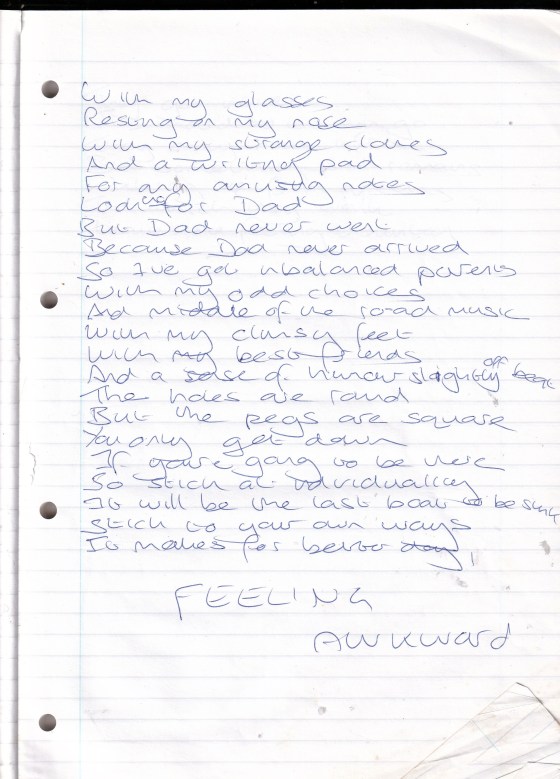 With my glasses
Resting on my nose
With my strange clothes
And a writing pad
For any amusing notes
Looking for Dad
But Dad never went
Because Dad never arrived
So I've got unbalanced parents
With my odd choices
And middle of the road music
With my clumsy feet
With my best friends
And a sense of humour slightly off beat
The holes are round
But the pegs are square
You only get down
If you're going to be there
So stick at individuality
It will be the last boat to be sunk
Stick to your own ways
It makes for better day,
FEELING
AWKWARD